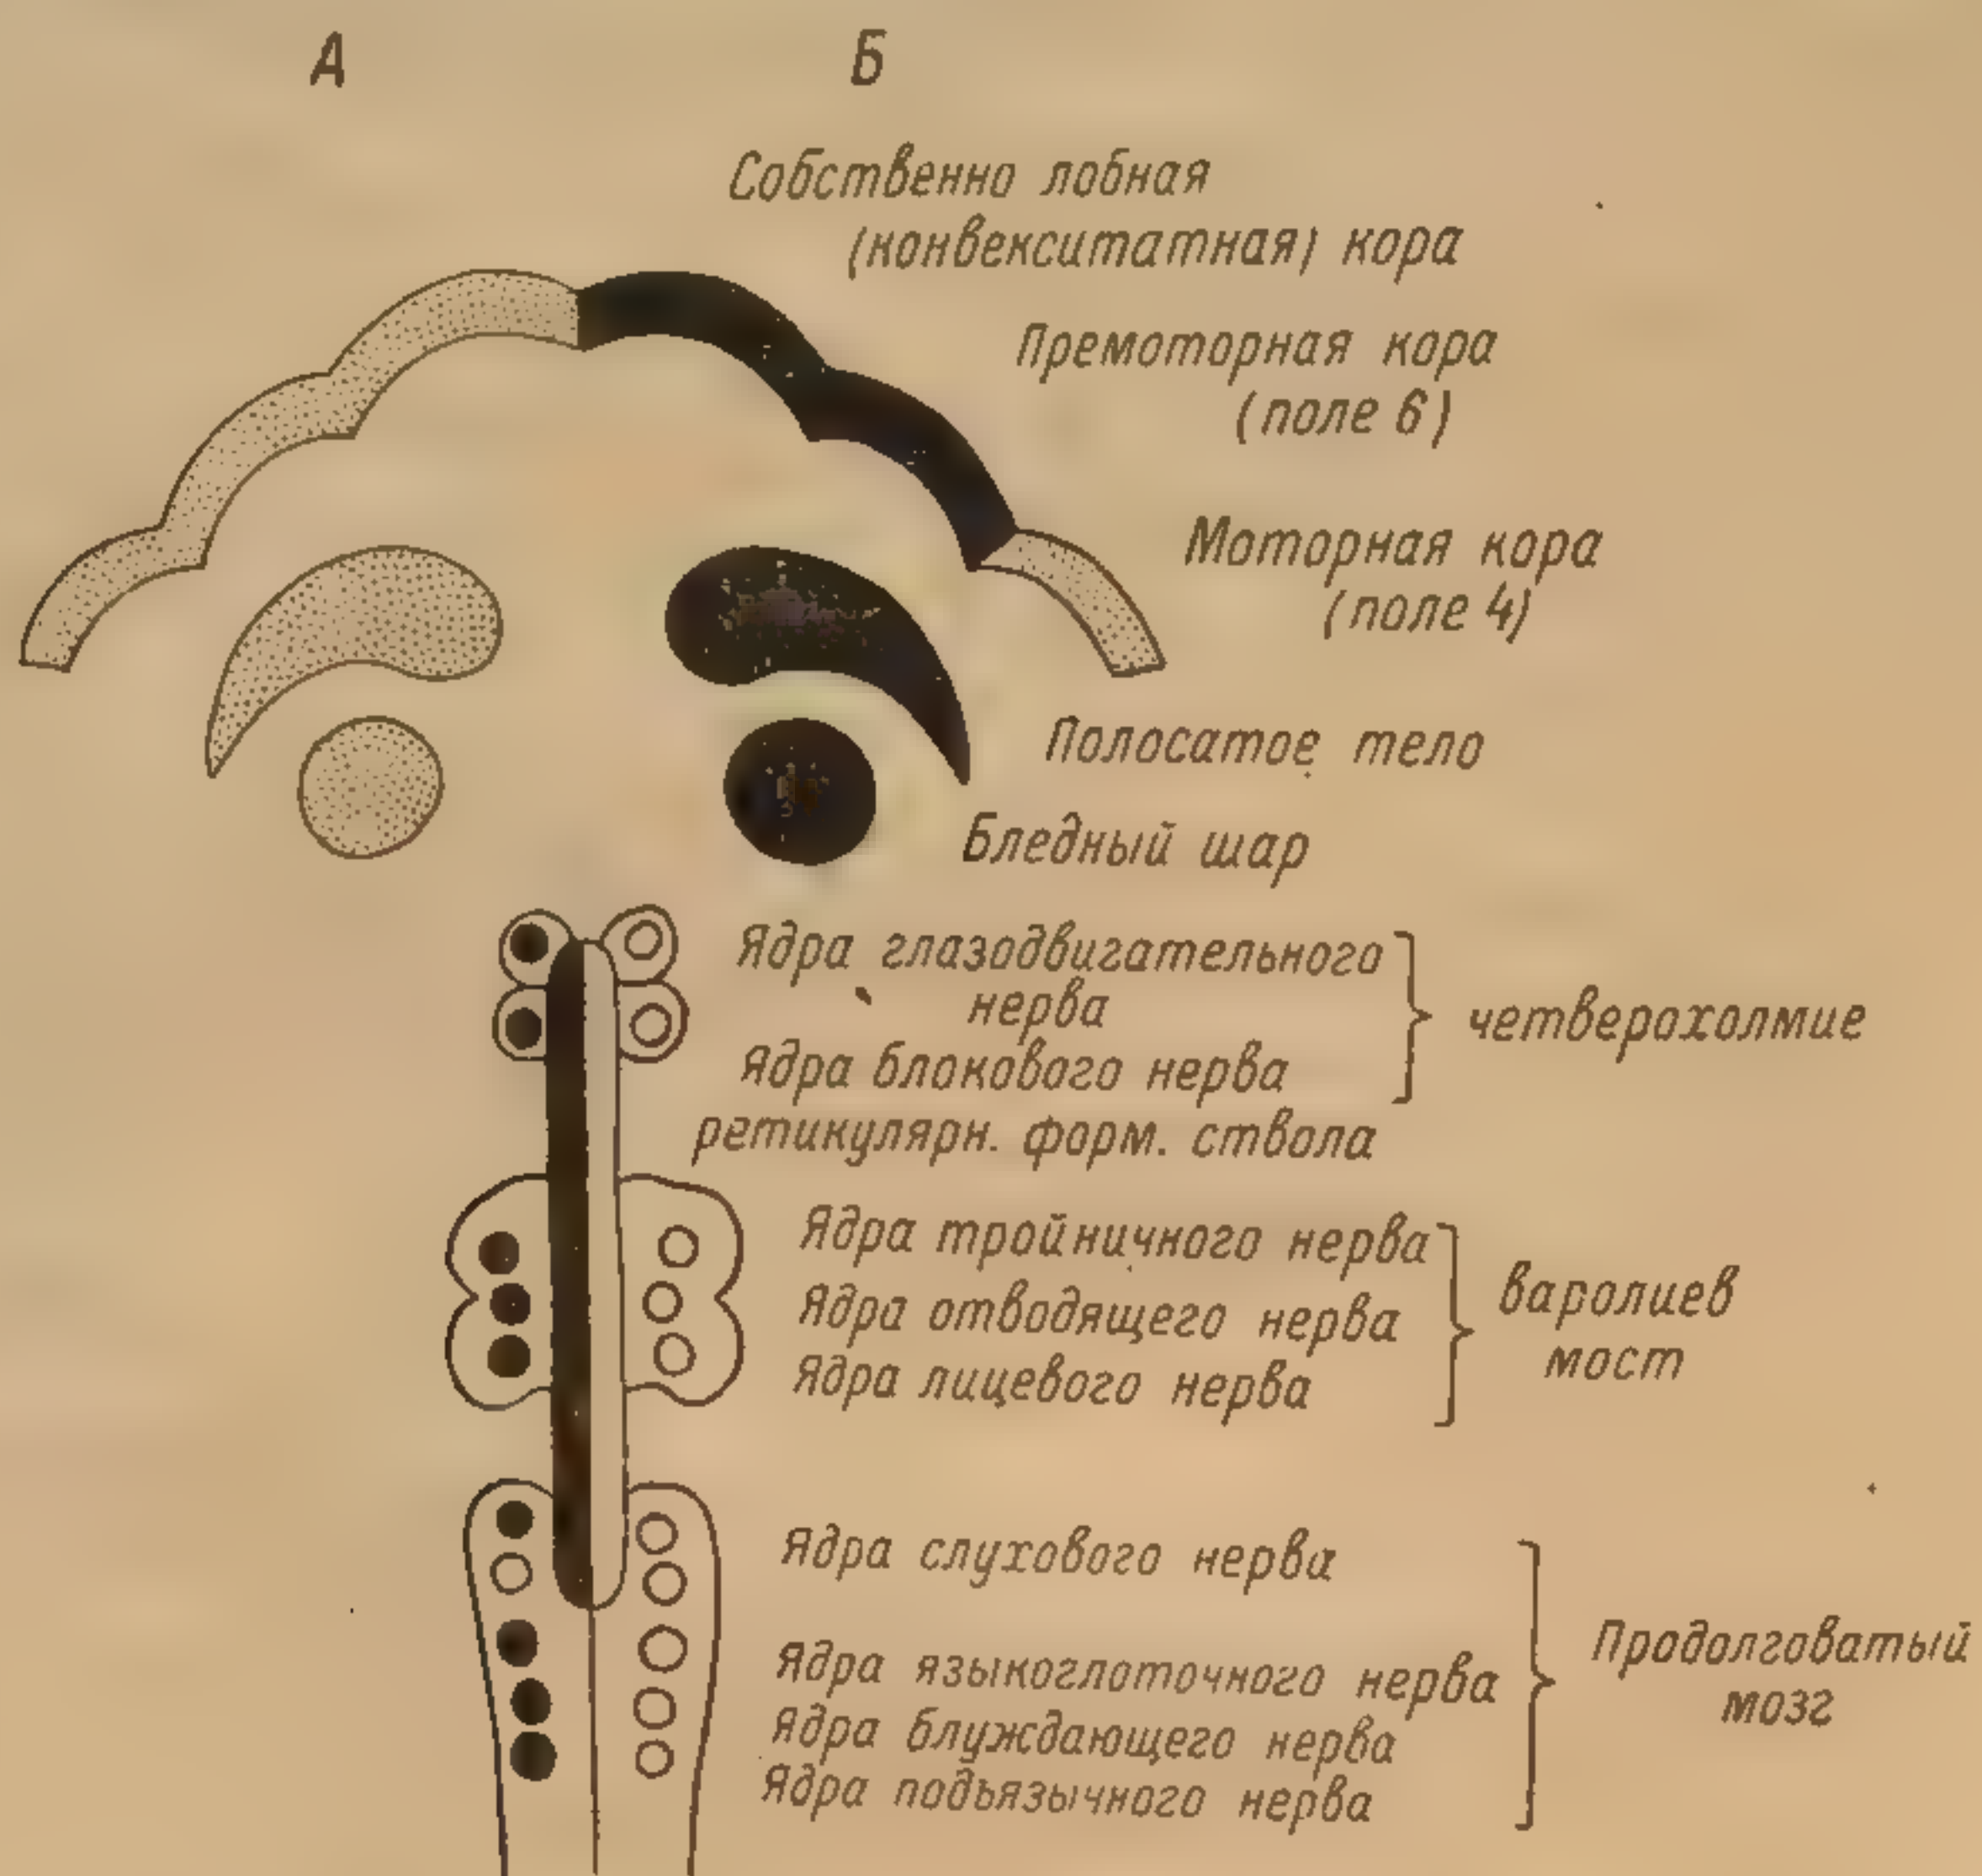 А Б
Собственно лобная
(конвекситатная) кора
Премоторная кора
(поле 6)
Моторная кора
(поле 4)
Полосатое тело
Бледный шар
Ядра глазодвигательного
нерва
Ядра блокового нерва
четверохолмие
ретикулярн. форм. ствола
Ядра тройничного нерва
Ядра отводящего нерва
Ядра лицевого нерва
варолиев
мост
Ядра слухового нерва
Ядра языкоглоточного нерва
Ядра блуждающего нерва
Ядра подъязычного нерва
Продолговатый
мозг